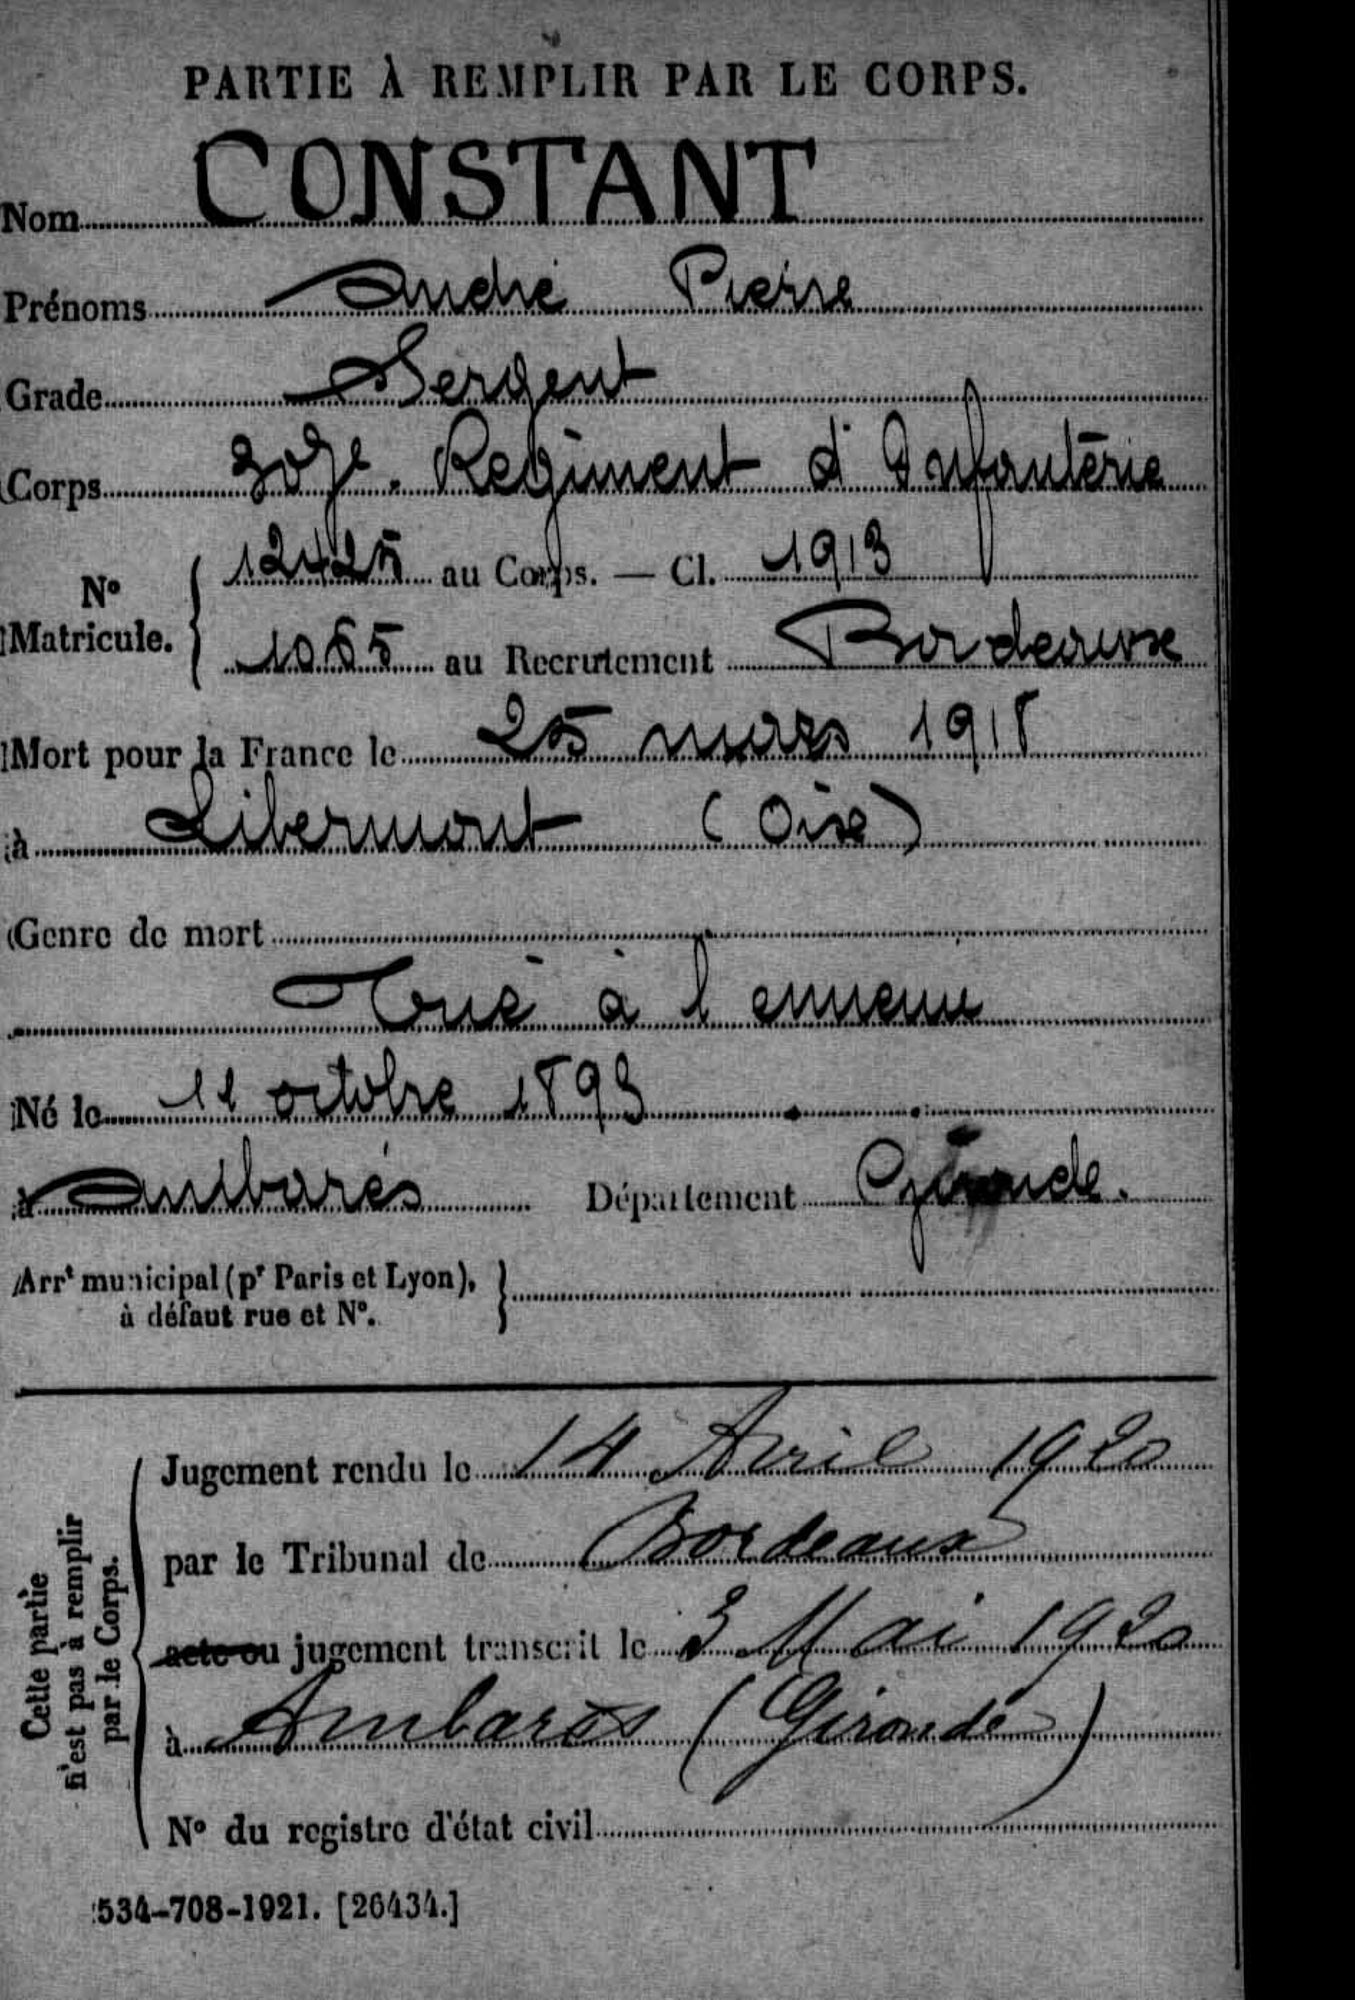 PARTIE À REMPLIR PAR LE CORPS.
Nom CONSTANT
Prénoms André Pierre
Grade Sergent
Corps 307e. Regiment d'Infanterie
No Matricule. 12425 au Corps. — Cl. 1913
1065 au Recrutement Bordeaux
Mort pour la France le 25 mars 1918
à Libermont (Oise)
Genre de mort
Tué à l'ennemi
Né le 11 octobre 1893
à Ambarés Département Gironde.
Arrt municipal (pr Paris et Lyon),
à défaut rue et No.
Cette partie
n'est pas à remplir
par le Corps.
Jugement rendu le 14 Avril 1920
par le Tribunal de Bordeaux
acte ou jugement transcrit le 3 Mai 1920
à Ambarès (Gironde)
No du registre d'état civil
534-708-1921. [26434.]